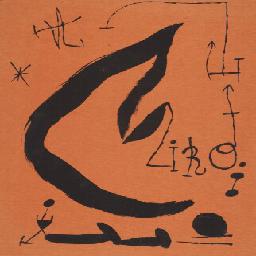 MIRÓ